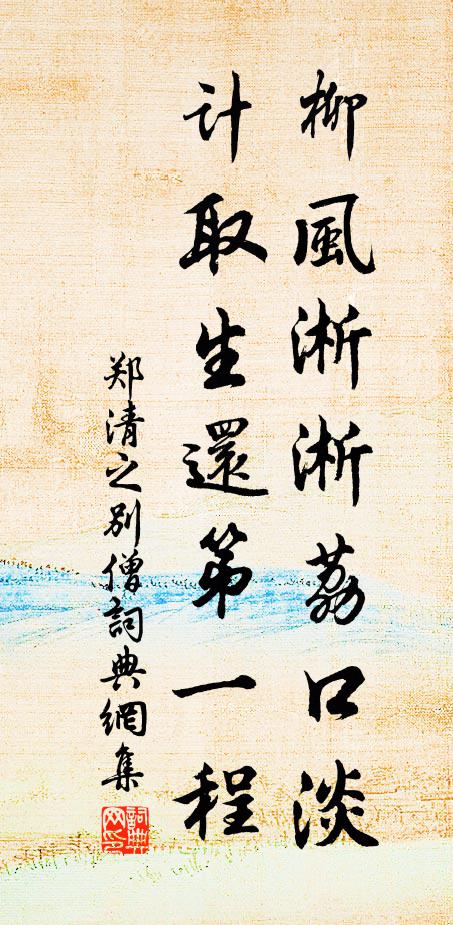 柳風淅淅荔口淡
计取生還第一程
郑清之别僧詞典網集
詞典网印